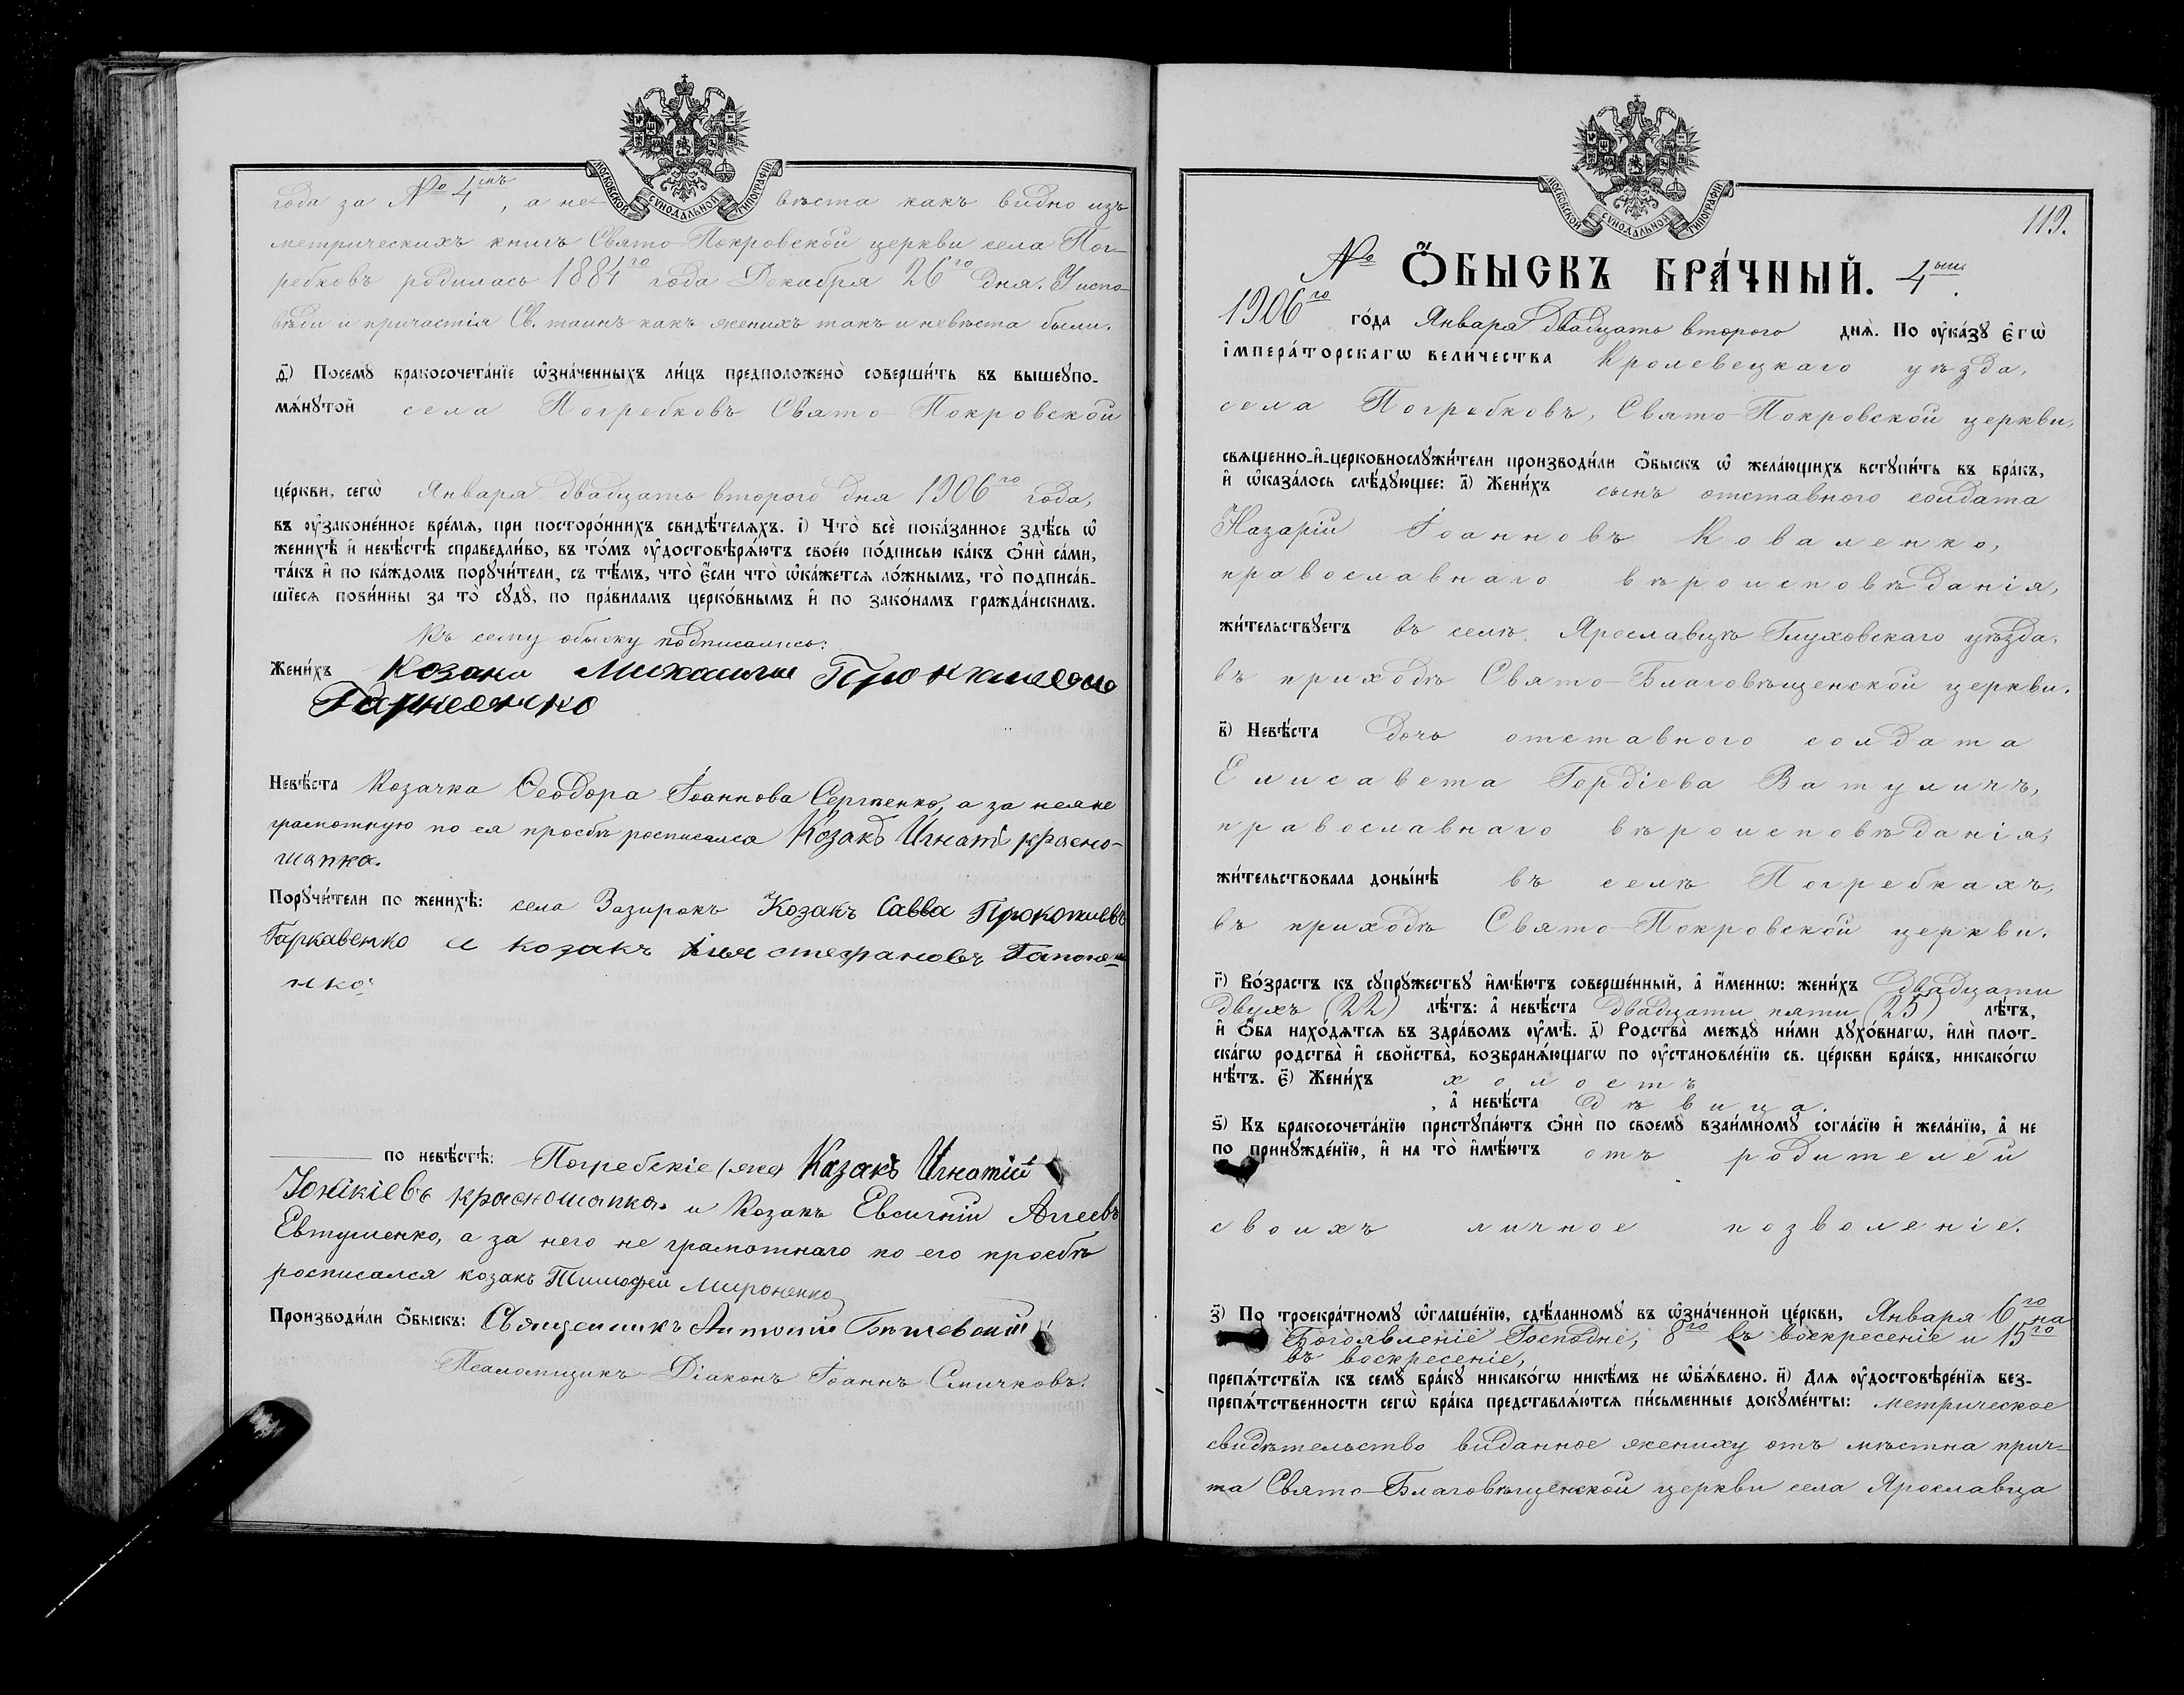 МОСКОВСКОЙ СѴНОДАЛЬНОЙ ТИПОГРАФІИ
года за № 4, а не- вѣста какъ видно изъ
метрическихъ книгъ Свято-Покровской церкви села Пог-
ребковъ родилась 1884го года Декабря 26го дня. У испо-
вѣди и причастія Св. таинъ какъ женихъ такъ и невѣста были.
ѳ҃) Посемꙋ бракосочета́нїе ѡ҆зна́ченныхъ ли́цъ предположено̀ соверши́ть въ вышеꙋпо-
мѧ́нꙋтой села Погребковъ Свято-Покровской
це́ркви, сегѡ̀ Января двадцать второго дня 1906го года,
въ ᲂу҆законе́нное вре́мѧ, при посторо́ннихъ свидѣ́телѧхъ. і҃) Что̀ всѐ пока́занное здѣ́сь ѡ҆
женихѣ̀ и҆ невѣ́стѣ справедли́во, въ то́мъ ᲂу҆достовѣрѧ́ютъ свое́ю по́дписью ка́къ ѻ҆нѝ са́ми,
та́къ и҆ по ка́ждомъ порꙋчи́тели, съ тѣ́мъ, что̀ є҆́сли что̀ ѡ҆ка́жетсѧ ло́жнымъ, то̀ подписа́в-
шїесѧ пови́нны за то̀ сꙋдꙋ̀, по пра́виламъ церко́внымъ и҆ по зако́намъ гражда́нскимъ.
Къ сему обыску подписались:
Жени́хъ Козакъ Михаилъ
Невѣ́ста Козачка Ѳеодора Іоаннова Сергіенко, а за нея не
грамотную по ея просьбѣ росписался Козакъ Игнатій красно-
шапка.
Порꙋчи́тели по женихѣ̀: села Зазирокъ Козакъ Савва Прокопіевъ
Гаркавенко и козакъ стефановъ Гапоне-
нко
по невѣ́стѣ: Погребскіе (же) Козакъ Игнатій
Іоникіевъ красношапка. и Козакъ Евсигній Агеевъ
Евтушенко, а за него не грамотнаго по его просьбѣ
росписался козакъ Тимофей Мироненко
Производи́ли ѻ҆́быскъ: Священникъ Антоній
Псаломщикъ-Діаконъ Іоаннъ Смичковъ.
МОСКОВСКОЙ СѴНОДАЛЬНОЙ ТИПОГРАФІИ
119.
№ Ѻ҆́БЫСКЪ БРА́ЧНЫЙ. 4ый.
1906го го́да Января двадцать второго днѧ̀. По ᲂу҆ка́зꙋ є҆гѡ̀
и҆мпера́торскагѡ вели́чества Кролевецкаго уѣзда,
села Погребковъ, Свято-Покровской церкви,
свѧще́нно-и҆-церковнослꙋжи́тели производи́ли ѻ҆́быскъ ѡ҆ жела́ющихъ встꙋпи́ть въ бра́къ,
и҆ ѡ҆каза́лось слѣ́дꙋющее: а҃) Жени́хъ сынъ отставного солдата
Назарій Іоанновъ Коваленко,
православнаго вѣроисповѣданія,
жи́тельствꙋетъ въ селѣ Ярославцѣ Глуховскаго уѣзда,
въ приходѣ Свято-Благовѣщенской церкви.
в҃) Невѣ́ста дочь отставного солдата
Елисавета Гордіева Ватуличъ,
православнаго вѣроисповѣданія,
жи́тельствовала доны́нѣ въ селѣ Погребкахъ,
въ приходѣ Свято-Покровской церкви.
г҃) Во́зрастъ къ сꙋпрꙋ́жествꙋ и҆мѣ́ютъ соверше́нный, а҆ и҆́меннѡ: жени́хъ двадцати
двухъ (22) лѣ́тъ: а҆ невѣ́ста двадцати пяти (25) лѣ́тъ,
и҆ ѻ҆́ба нахо́дѧтсѧ въ здра́вомъ ᲂу҆мѣ̀. д҃) Родства̀ междꙋ ни́ми дꙋхо́внагѡ, и҆лѝ плот-
ска́гѡ родства̀ и҆ свойства̀, возбранѧ́ющагѡ по ᲂу҆становле́нїю св. це́ркви бра́къ, никако́гѡ
нѣ́тъ. є҃) Жени́хъ холостъ
, а҆ невѣ́ста дѣвица.
ѕ҃) Къ бракосочета́нїю пристꙋпа́ютъ ѻ҆нѝ по своемꙋ̀ взаи́мномꙋ согла́сїю и҆ жела́нїю, а҆ не
по принꙋжде́нїю, и҆ на то̀ и҆мѣ́ютъ отъ родителей
своихъ личное позволеніе.
з҃) По троекра́тномꙋ ѡ҆глаше́нїю, сдѣ́ланномꙋ въ ѡ҆зна́ченной це́ркви, Января 6го на
Богоявленіе Господне, 8го въ воскресеніе и 15го
въ воскресеніе,
препѧ́тствїѧ къ семꙋ̀ бра́кꙋ никако́гѡ никѣ́мъ не ѡ҆б̾ѧ́влено. и҃) Длѧ ᲂу҆достовѣре́нїѧ без-
препѧ́тственности сегѡ̀ бра́ка представлѧ́ютсѧ пи́сьменные докꙋме́нты: метрическое
свидѣтельство виданное жениху отъ мѣстна прич-
та Свято-Благовѣщенской церкви села Ярославца